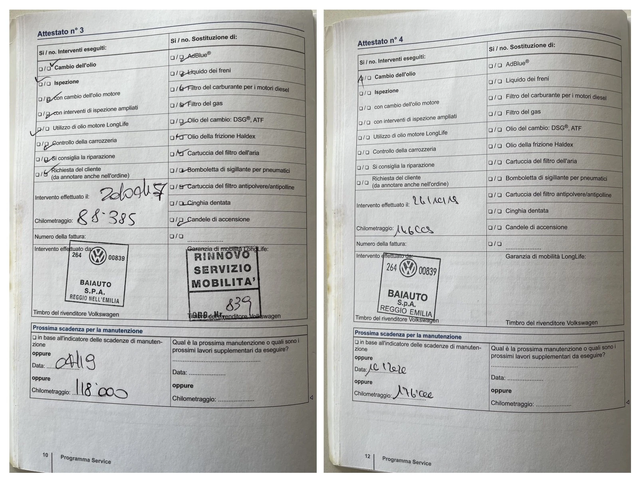 Attestato n° 3
Si / no. Interventi eseguiti:
Si / no. Sostituzione di:
Cambio dell'olio
AdBlue®
Ispezione
Liquido dei freni
con cambio dell'olio motore
Filtro del carburante per i motori diesel
con interventi di ispezione ampliati
Filtro del gas
Utilizzo di olio motore LongLife
Olio del cambio: DSG®, ATF
Controllo della carrozzeria
Olio della frizione Haldex
Si consiglia la riparazione
Cartuccia del filtro dell'aria
Richiesta del cliente
(da annotare anche nell'ordine)
Bomboletta di sigillante per pneumatici
Cartuccia del filtro antipolvere/antipolline
Intervento effettuato il:
Cinghia dentata
Chilometraggio: 88.385
Candele di accensione
Numero della fattura:
Intervento effettuato da:
Garanzia di mobilità LongLife:
264 00839
BAIAUTO
S.P.A.
REGGIO NELL'EMILIA
RINNOVO
SERVIZIO
MOBILITA'
839
Timbro del rivenditore Volkswagen
Prossima scadenza per la manutenzione
in base all'indicatore delle scadenze di manuten-
zione
oppure
Data: 04/19
oppure
Chilometraggio: 118.000
Qual è la prossima manutenzione o quali sono i
prossimi lavori supplementari da eseguire?
10 Programma Service
Attestato n° 4
Si / no. Interventi eseguiti:
Si / no. Sostituzione di:
Cambio dell'olio
AdBlue®
Ispezione
Liquido dei freni
con cambio dell'olio motore
Filtro del carburante per i motori diesel
con interventi di ispezione ampliati
Filtro del gas
Utilizzo di olio motore LongLife
Olio del cambio: DSG®, ATF
Controllo della carrozzeria
Olio della frizione Haldex
Si consiglia la riparazione
Cartuccia del filtro dell'aria
Richiesta del cliente
(da annotare anche nell'ordine)
Bomboletta di sigillante per pneumatici
Cartuccia del filtro antipolvere/antipolline
Intervento effettuato il:
Cinghia dentata
Chilometraggio:
Candele di accensione
Numero della fattura:
Intervento effettuato da:
Garanzia di mobilità LongLife:
264 00839
BAIAUTO
S.P.A.
REGGIO EMILIA
Timbro del rivenditore Volkswagen
Prossima scadenza per la manutenzione
in base all'indicatore delle scadenze di manuten-
zione
oppure
Data:
oppure
Chilometraggio:
Qual è la prossima manutenzione o quali sono i
prossimi lavori supplementari da eseguire?
Data:
oppure
Chilometraggio:
12 Programma Service